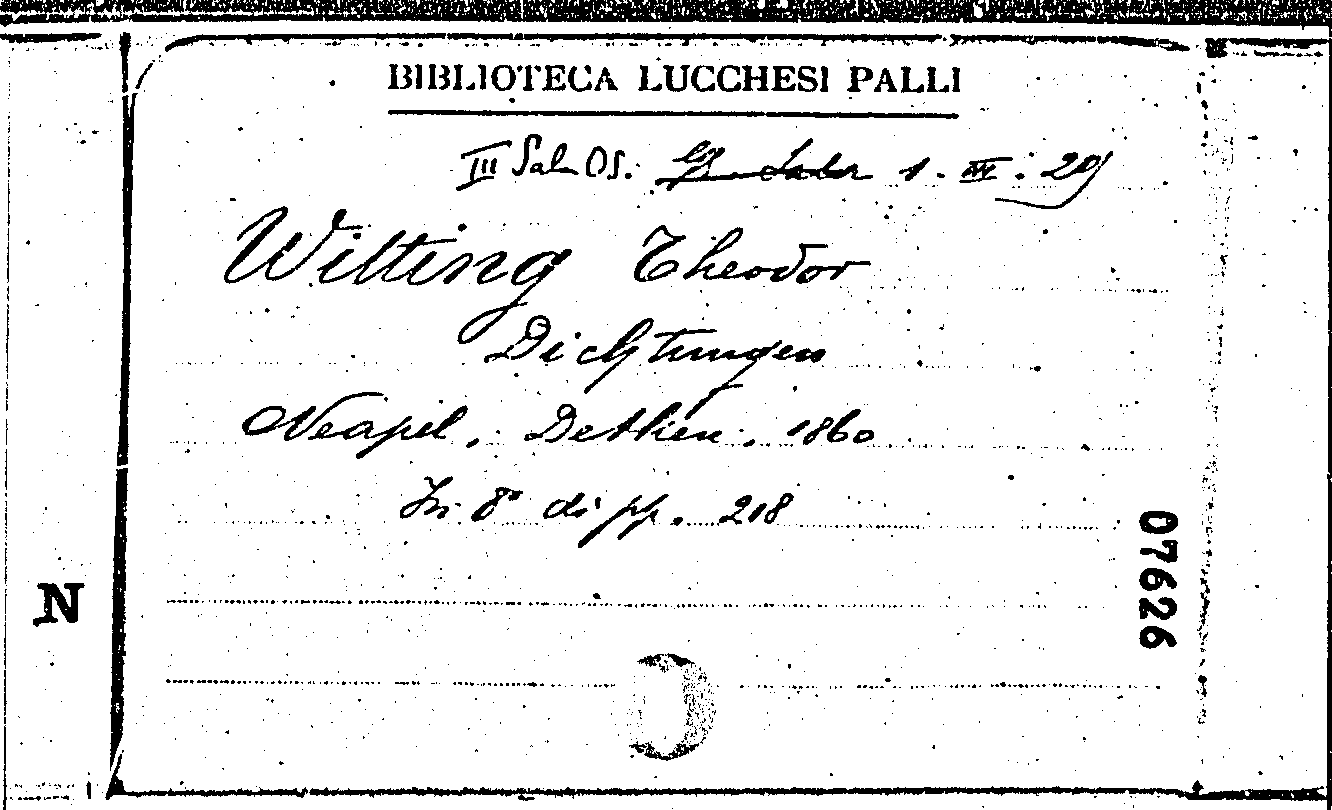 BIBLIOTECA LUCCHESI PALLI
III Sala Os. 1. III. 29
Wilting Theodor
Dichtungen
Neapel. Dethen. 1860
In 8º di pp. 218
N
07626